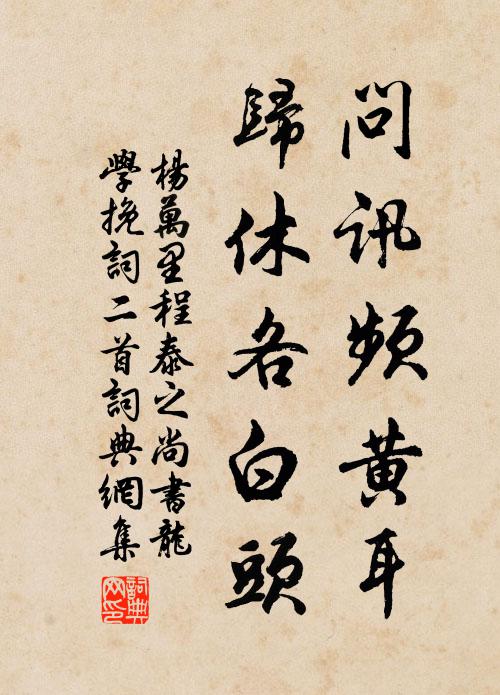 問訊頻黄耳
歸休各白頭
楊萬里程泰之尚書龍
學挽詞二首詞典網集
詞典
网印